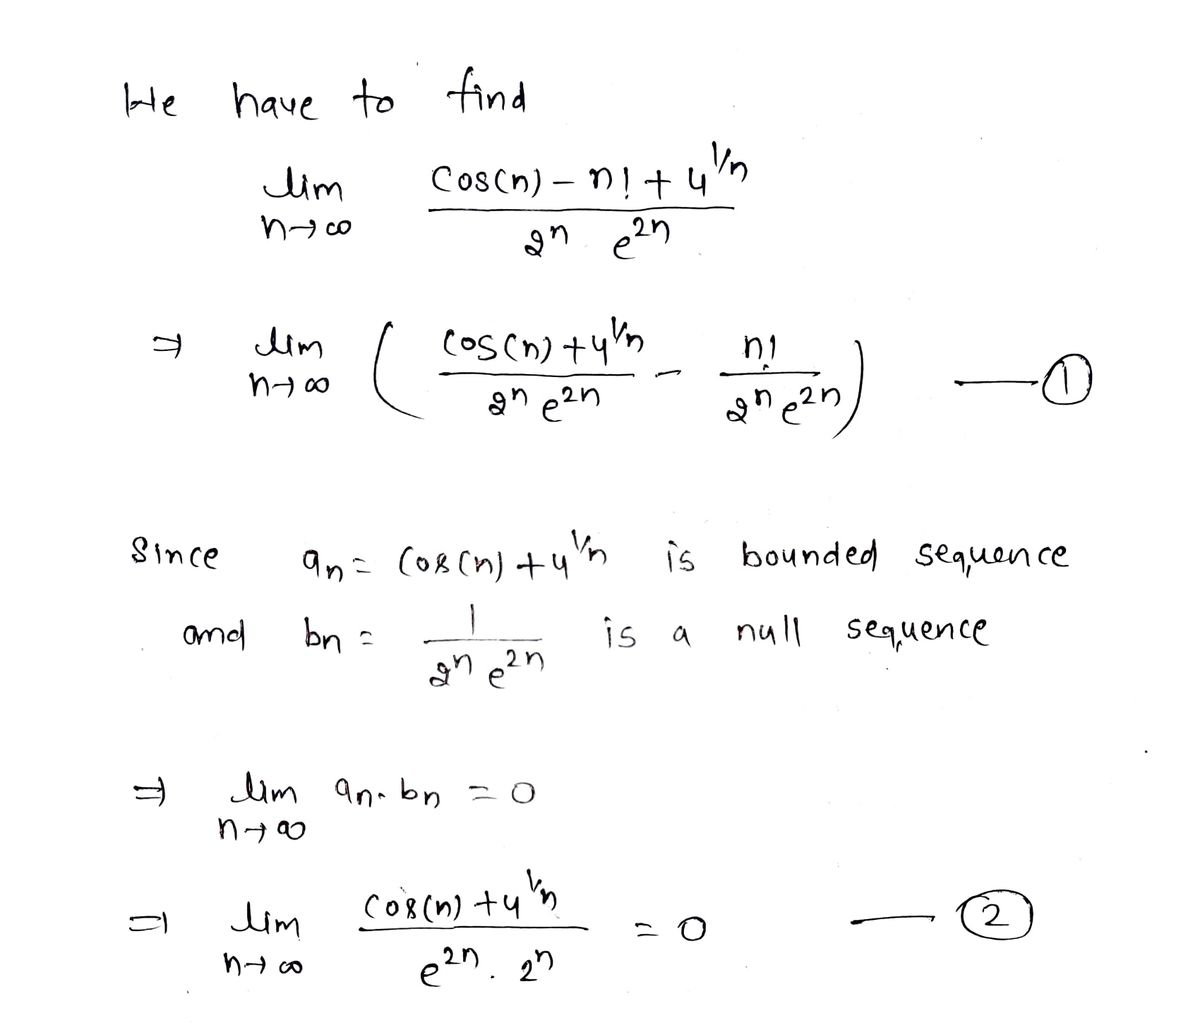 We have to find
lim n→∞ (cos(n) – n! + 4^{1/n}) / (2^n e^{2n})
⇒ lim n→∞ ( (cos(n) + 4^{1/n}) / (2^n e^{2n}) – n! / (2^n e^{2n}) ) —①
Since a_n = cos(n) + 4^{1/n} is bounded sequence
and b_n = 1 / (2^n e^{2n}) is a null sequence
⇒ lim n→∞ a_n . b_n = 0
⇒ lim n→∞ (cos(n) + 4^{1/n}) / (e^{2n} . 2^n) = 0 —②